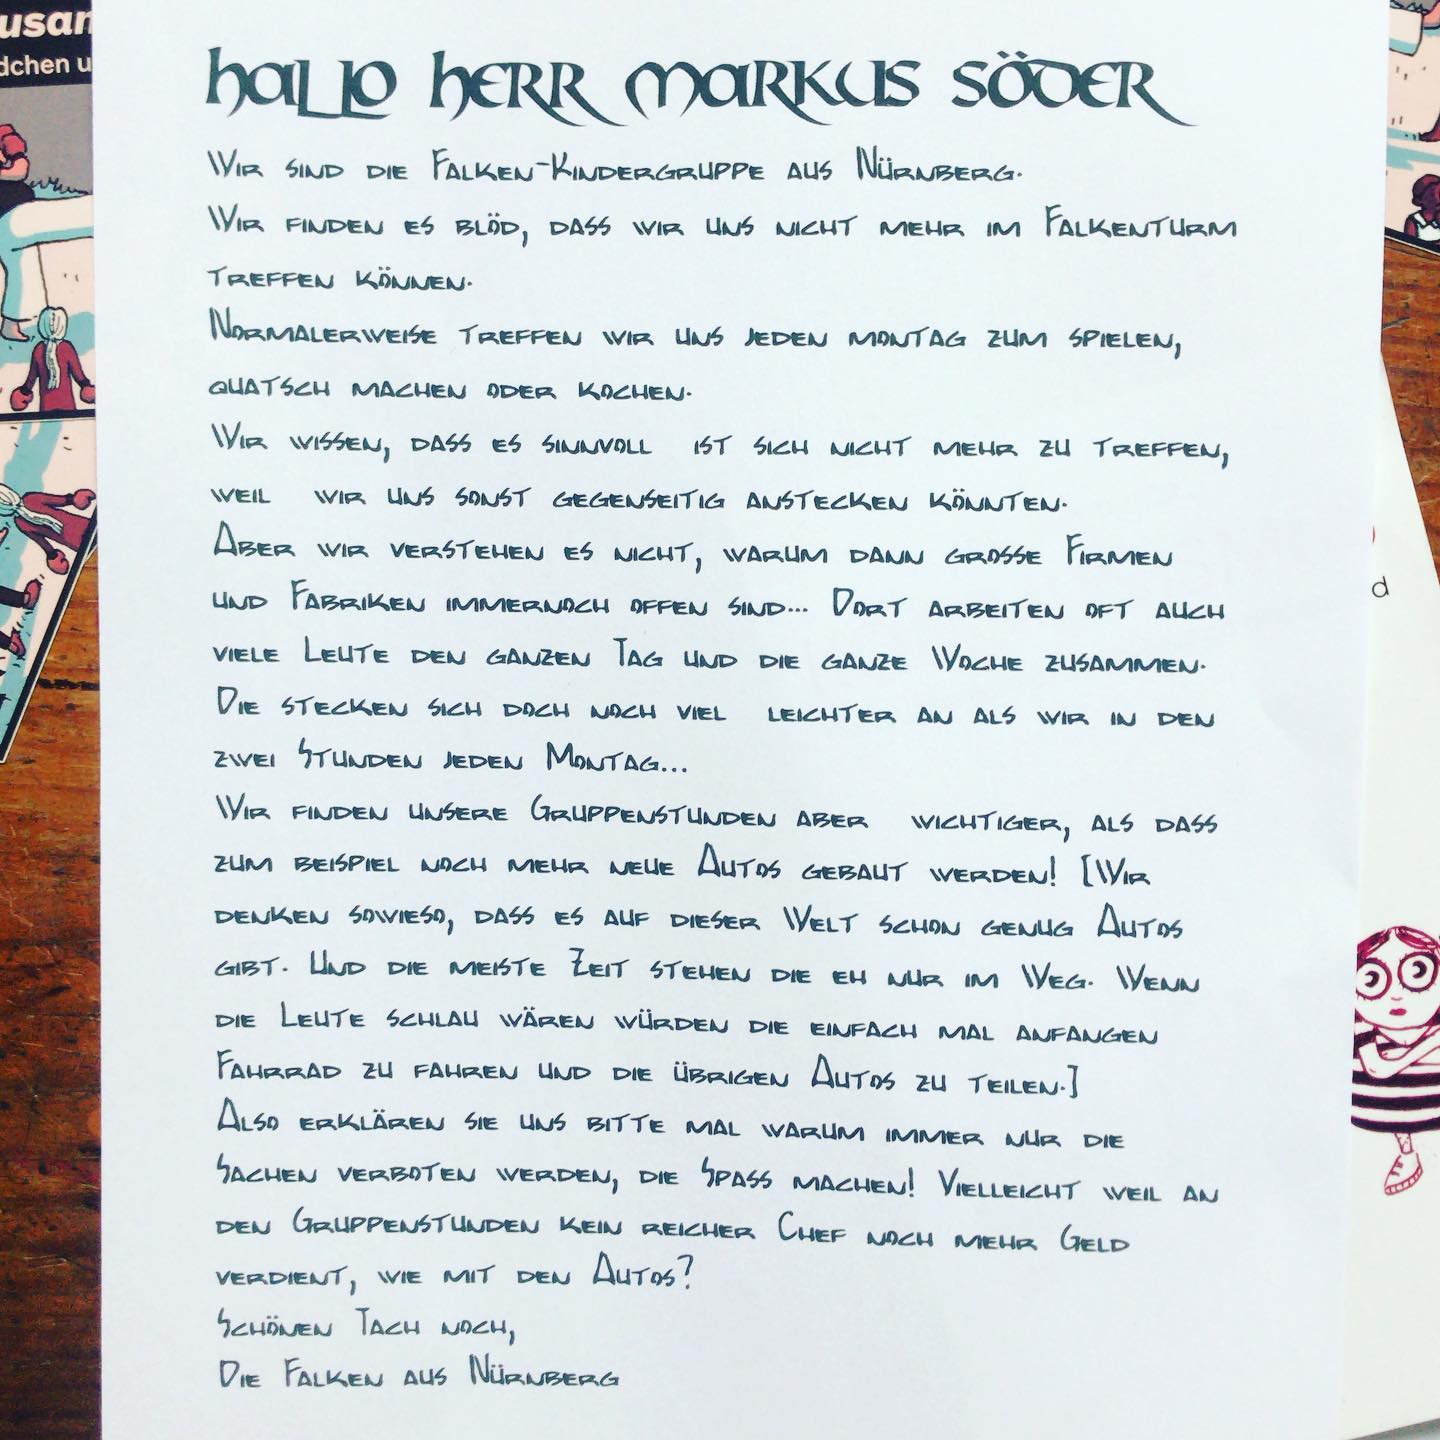 usam
dchen u
Hallo Herr Markus Söder
Wir sind die Falken-Kindergruppe aus Nürnberg.
Wir finden es blöd, dass wir uns nicht mehr im Falkenturm
treffen können.
Normalerweise treffen wir uns jeden montag zum spielen,
quatsch machen oder kochen.
Wir wissen, dass es sinnvoll ist sich nicht mehr zu treffen,
weil wir uns sonst gegenseitig anstecken könnten.
Aber wir verstehen es nicht, warum dann grosse Firmen
und Fabriken immernoch offen sind... Dort arbeiten oft auch
viele Leute den ganzen Tag und die ganze Woche zusammen.
Die stecken sich doch noch viel leichter an als wir in den
zwei Stunden jeden Montag...
Wir finden unsere Gruppenstunden aber wichtiger, als dass
zum beispiel noch mehr neue Autos gebaut werden! [Wir
denken sowieso, dass es auf dieser Welt schon genug Autos
gibt. Und die meiste Zeit stehen die eh nur im Weg. Wenn
die Leute schlau wären würden die einfach mal anfangen
Fahrrad zu fahren und die übrigen Autos zu teilen.]
Also erklären sie uns bitte mal warum immer nur die
Sachen verboten werden, die Spass machen! Vielleicht weil an
den Gruppenstunden kein reicher Chef noch mehr Geld
verdient, wie mit den Autos?
Schönen Tach noch,
Die Falken aus Nürnberg
d